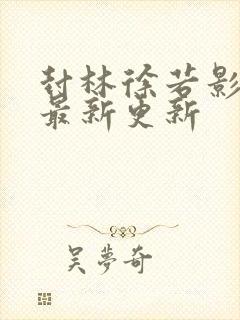 封林徐若影
最新更新
吴夢奇